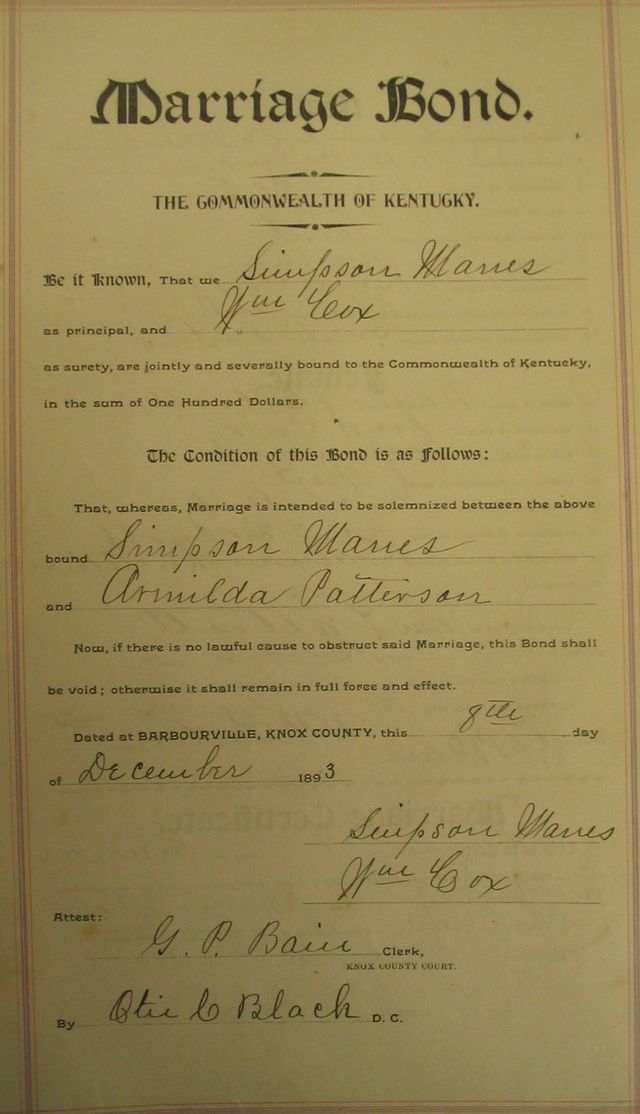 Marriage Bond.
THE COMMONWEALTH OF KENTUCKY.
Be it Known, That we Simpson Manes
as principal, and Wm Cox
as surety, are jointly and severally bound to the Commonwealth of Kentucky,
in the sum of One Hundred Dollars.
The Condition of this Bond is as Follows:
That, whereas, Marriage is intended to be solemnized between the above
bound Simpson Manes
and Armilda Patterson
Now, if there is no lawful cause to obstruct said Marriage, this Bond shall
be void; otherwise it shall remain in full force and effect.
Dated at BARBOURVILLE, KNOX COUNTY, this 8th day
of December 1893
Simpson Manes
Wm Cox
Attest:
G. P. Bain Clerk,
KNOX COUNTY COURT.
By Otie C Black D. C.